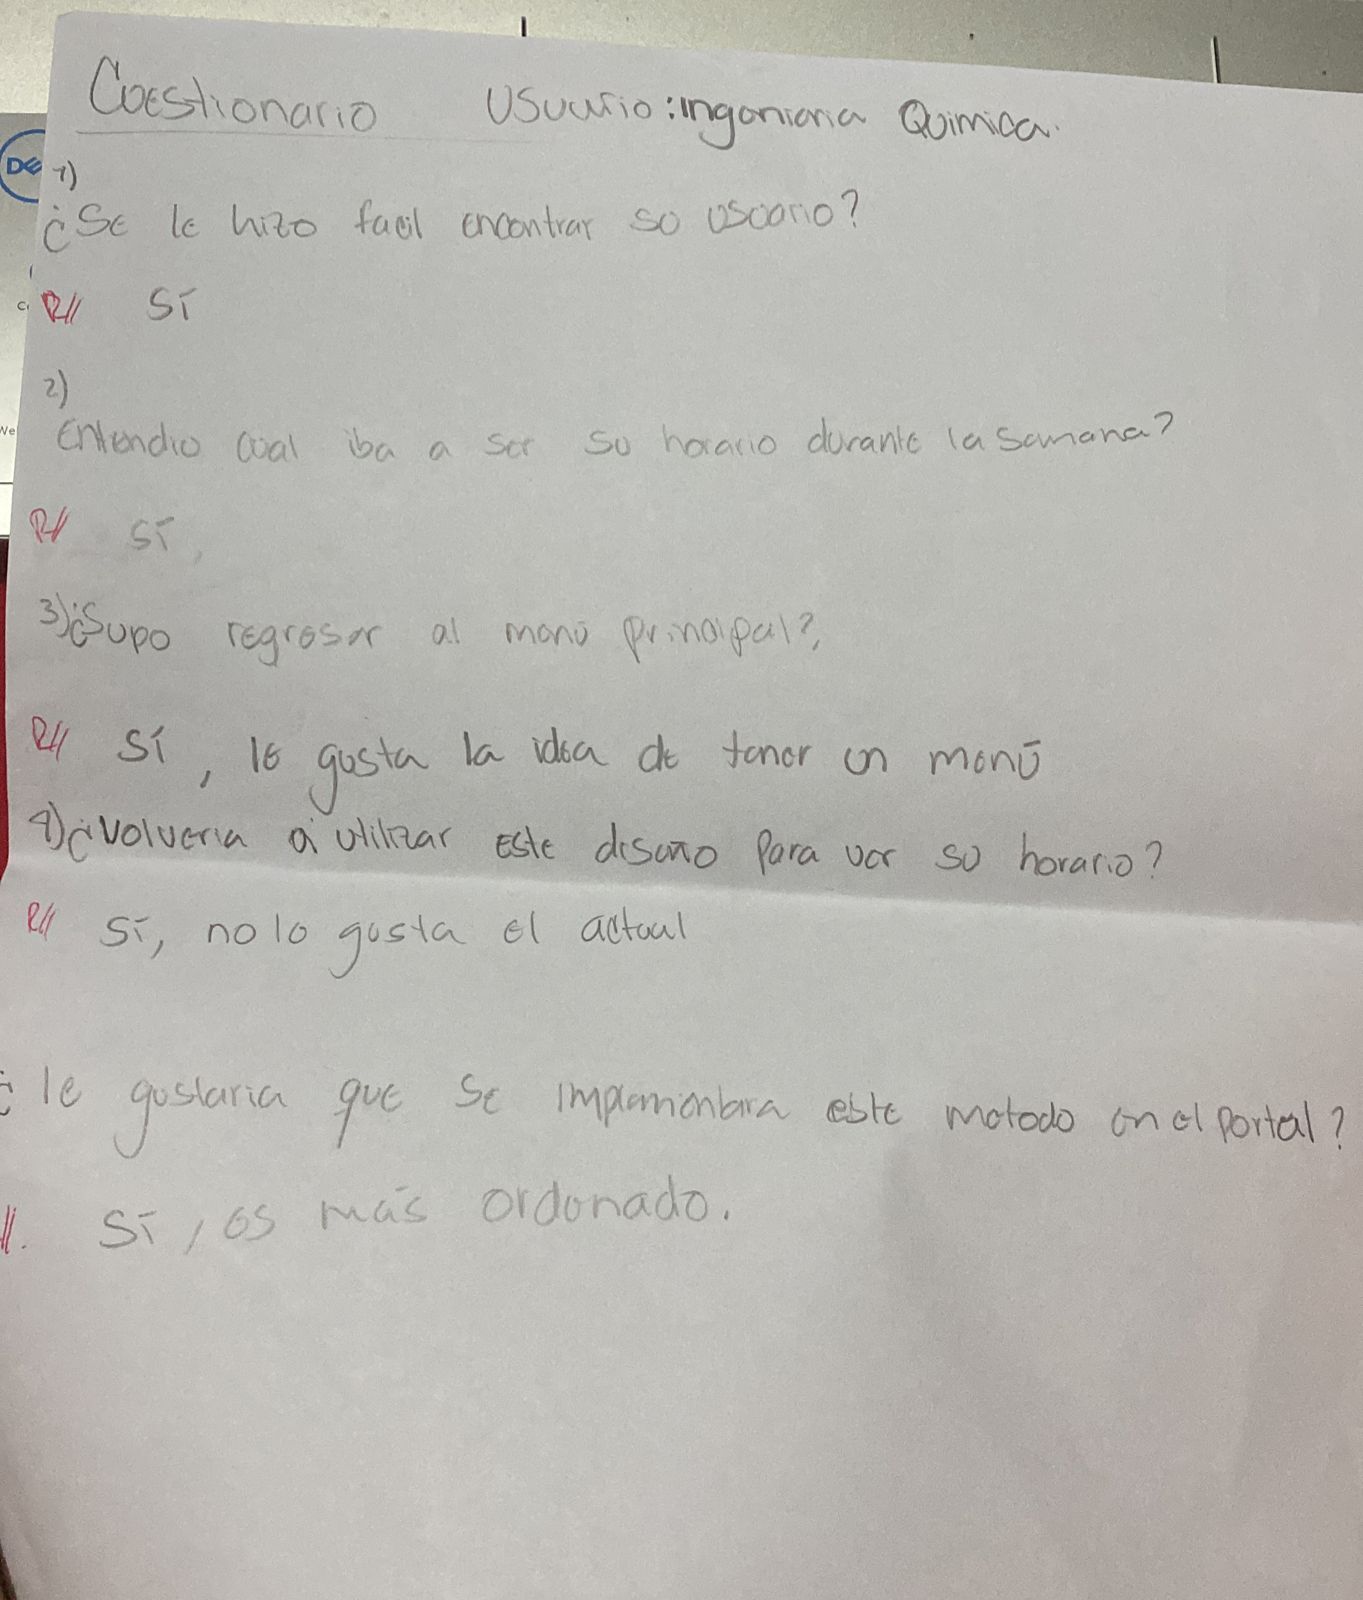 Cuestionario Usuario: ingenieria Quimica.
1)
¿Se le hizo facil encontrar su usuario?
R// Sí
2)
Entendio cual iba a ser su horario durante la semana?
R// Sí,
3) ¿Supo regresar al menú principal?,
R// Sí, le gusta la idea de tener un menú
4) ¿Volveria a utilizar este diseño para ver su horario?
R// Sí, no le gusta el actual
¿le gustaria que se implementara este metodo en el portal?
//. Sí, es más ordenado.
DE